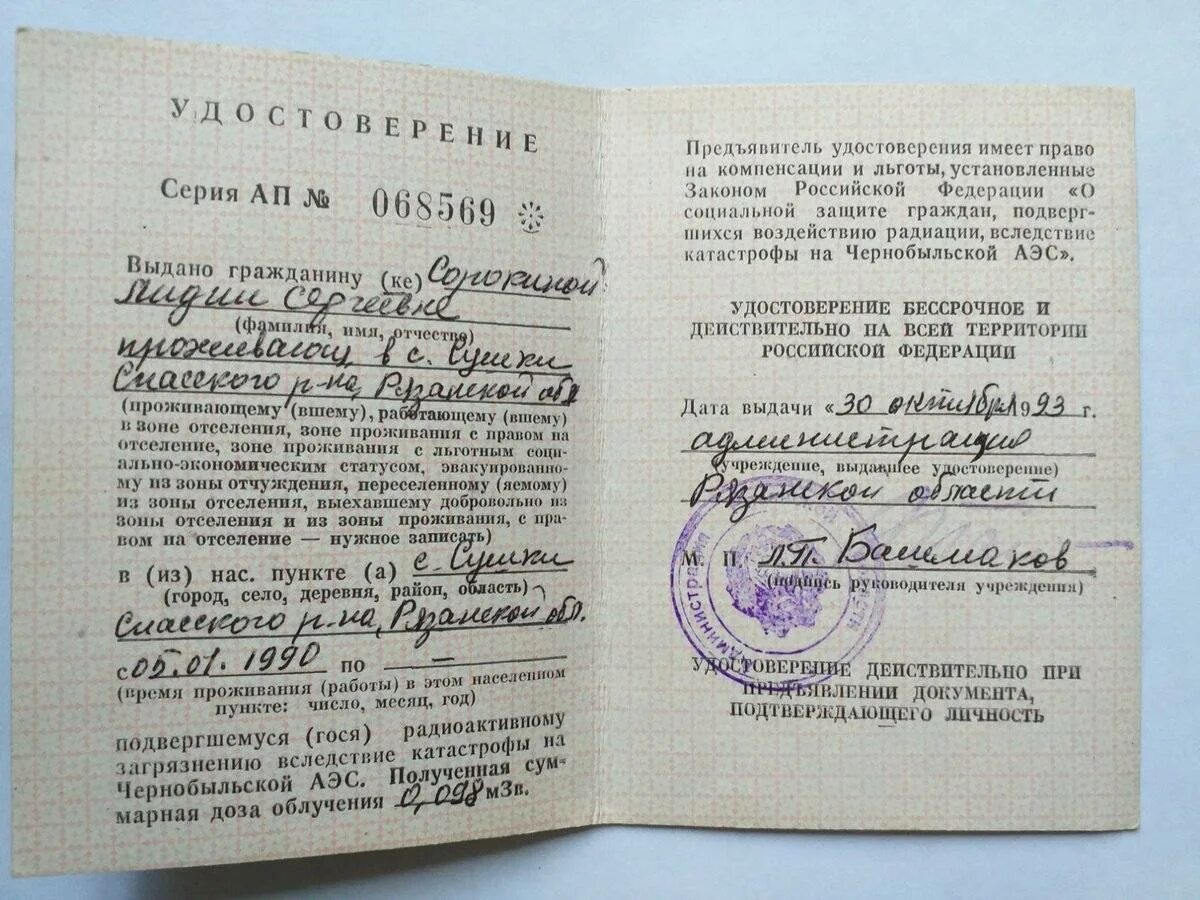 УДОСТОВЕРЕНИЕ
Серия АП № 068569
Выдано гражданину (ке) Сорокиной
Лидии Сергеевне
(фамилия, имя, отчество)
проживающ в с. Сушки
Спасского р-на, Рязанской обл
(проживающему (вшему), работающему (вшему)
в зоне отселения, зоне проживания с правом на
отселение, зоне проживания с льготным соци-
ально-экономическим статусом, эвакуированно-
му из зоны отчуждения, переселенному (яемому)
из зоны отселения, выехавшему добровольно из
зоны отселения и из зоны проживания, с пра-
вом на отселение — нужное записать)
в (из) нас. пункте (а) с. Сушки
(город, село, деревня, район, область)
Спасского р-на, Рязанской обл.
с 05.01.1990 по —
(время проживания (работы) в этом населенном
пункте: число, месяц, год)
подвергшемуся (гося) радиоактивному
загрязнению вследствие катастрофы на
Чернобыльской АЭС. Полученная сум-
марная доза облучения 0,098 мЗв.
Предъявитель удостоверения имеет право
на компенсации и льготы, установленные
Законом Российской Федерации «О
социальной защите граждан, подверг-
шихся воздействию радиации, вследствие
катастрофы на Чернобыльской АЭС».
УДОСТОВЕРЕНИЕ БЕССРОЧНОЕ И
ДЕЙСТВИТЕЛЬНО НА ВСЕЙ ТЕРРИТОРИИ
РОССИЙСКОЙ ФЕДЕРАЦИИ
Дата выдачи «30 октября 1993 г.
администрация
(учреждение, выдавшее удостоверение)
Рязанской области
М. П. Л.П. Башмаков
(подпись руководителя учреждения)
Администрация
УДОСТОВЕРЕНИЕ ДЕЙСТВИТЕЛЬНО ПРИ
ПРЕДЪЯВЛЕНИИ ДОКУМЕНТА,
ПОДТВЕРЖДАЮЩЕГО ЛИЧНОСТЬ